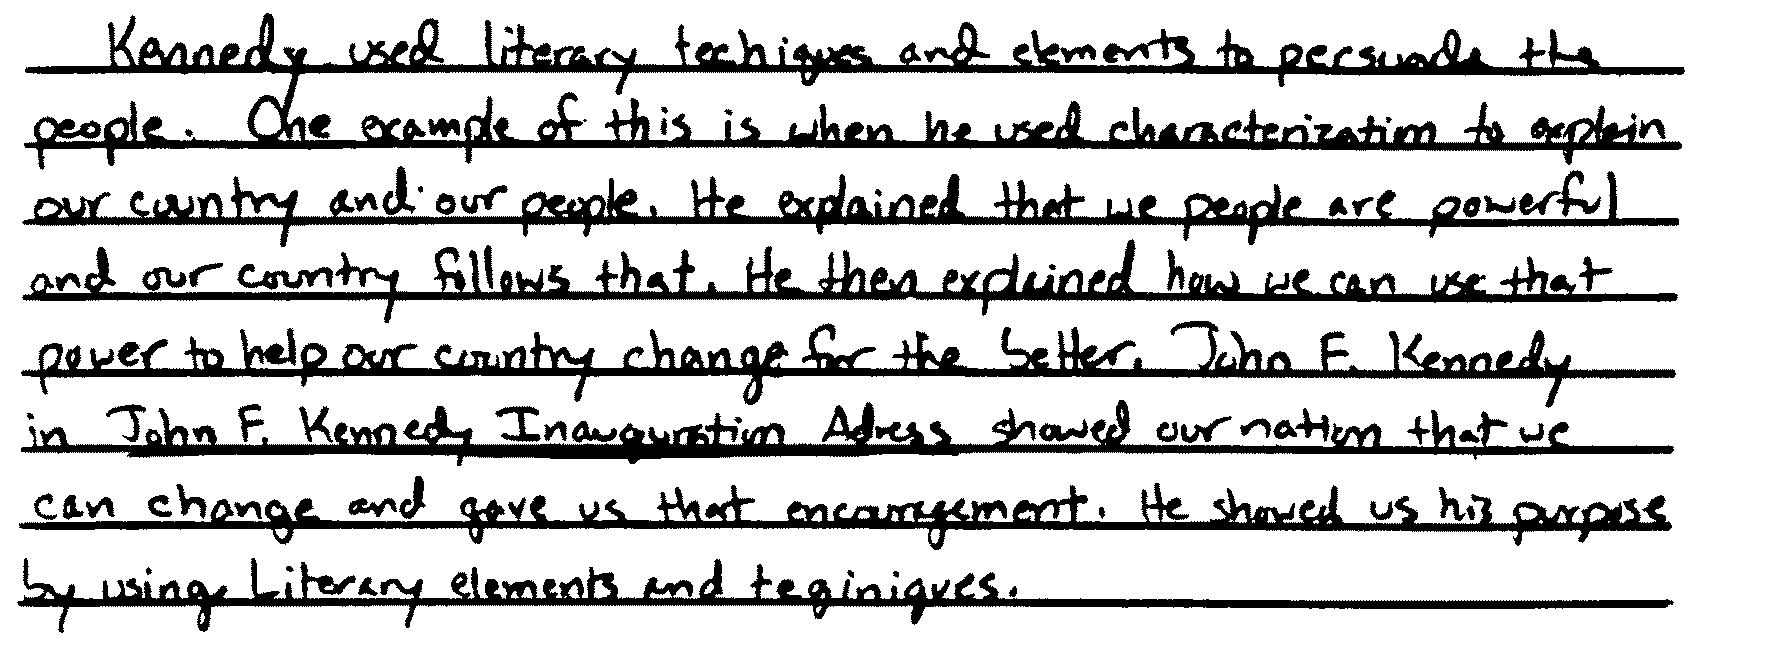 Kennedy used literary techiques and elements to persuade the
people. One example of this is when he used characterization to explain
our country and our people. He explained that we people are powerful
and our country follows that. He then explained how we can use that
power to help our country change for the better. John F. Kennedy
in John F. Kennedy Inauguration Adress showed our nation that we
can change and gave us that encouragement. He showed us his purpose
by using Literary elements and teginiques.